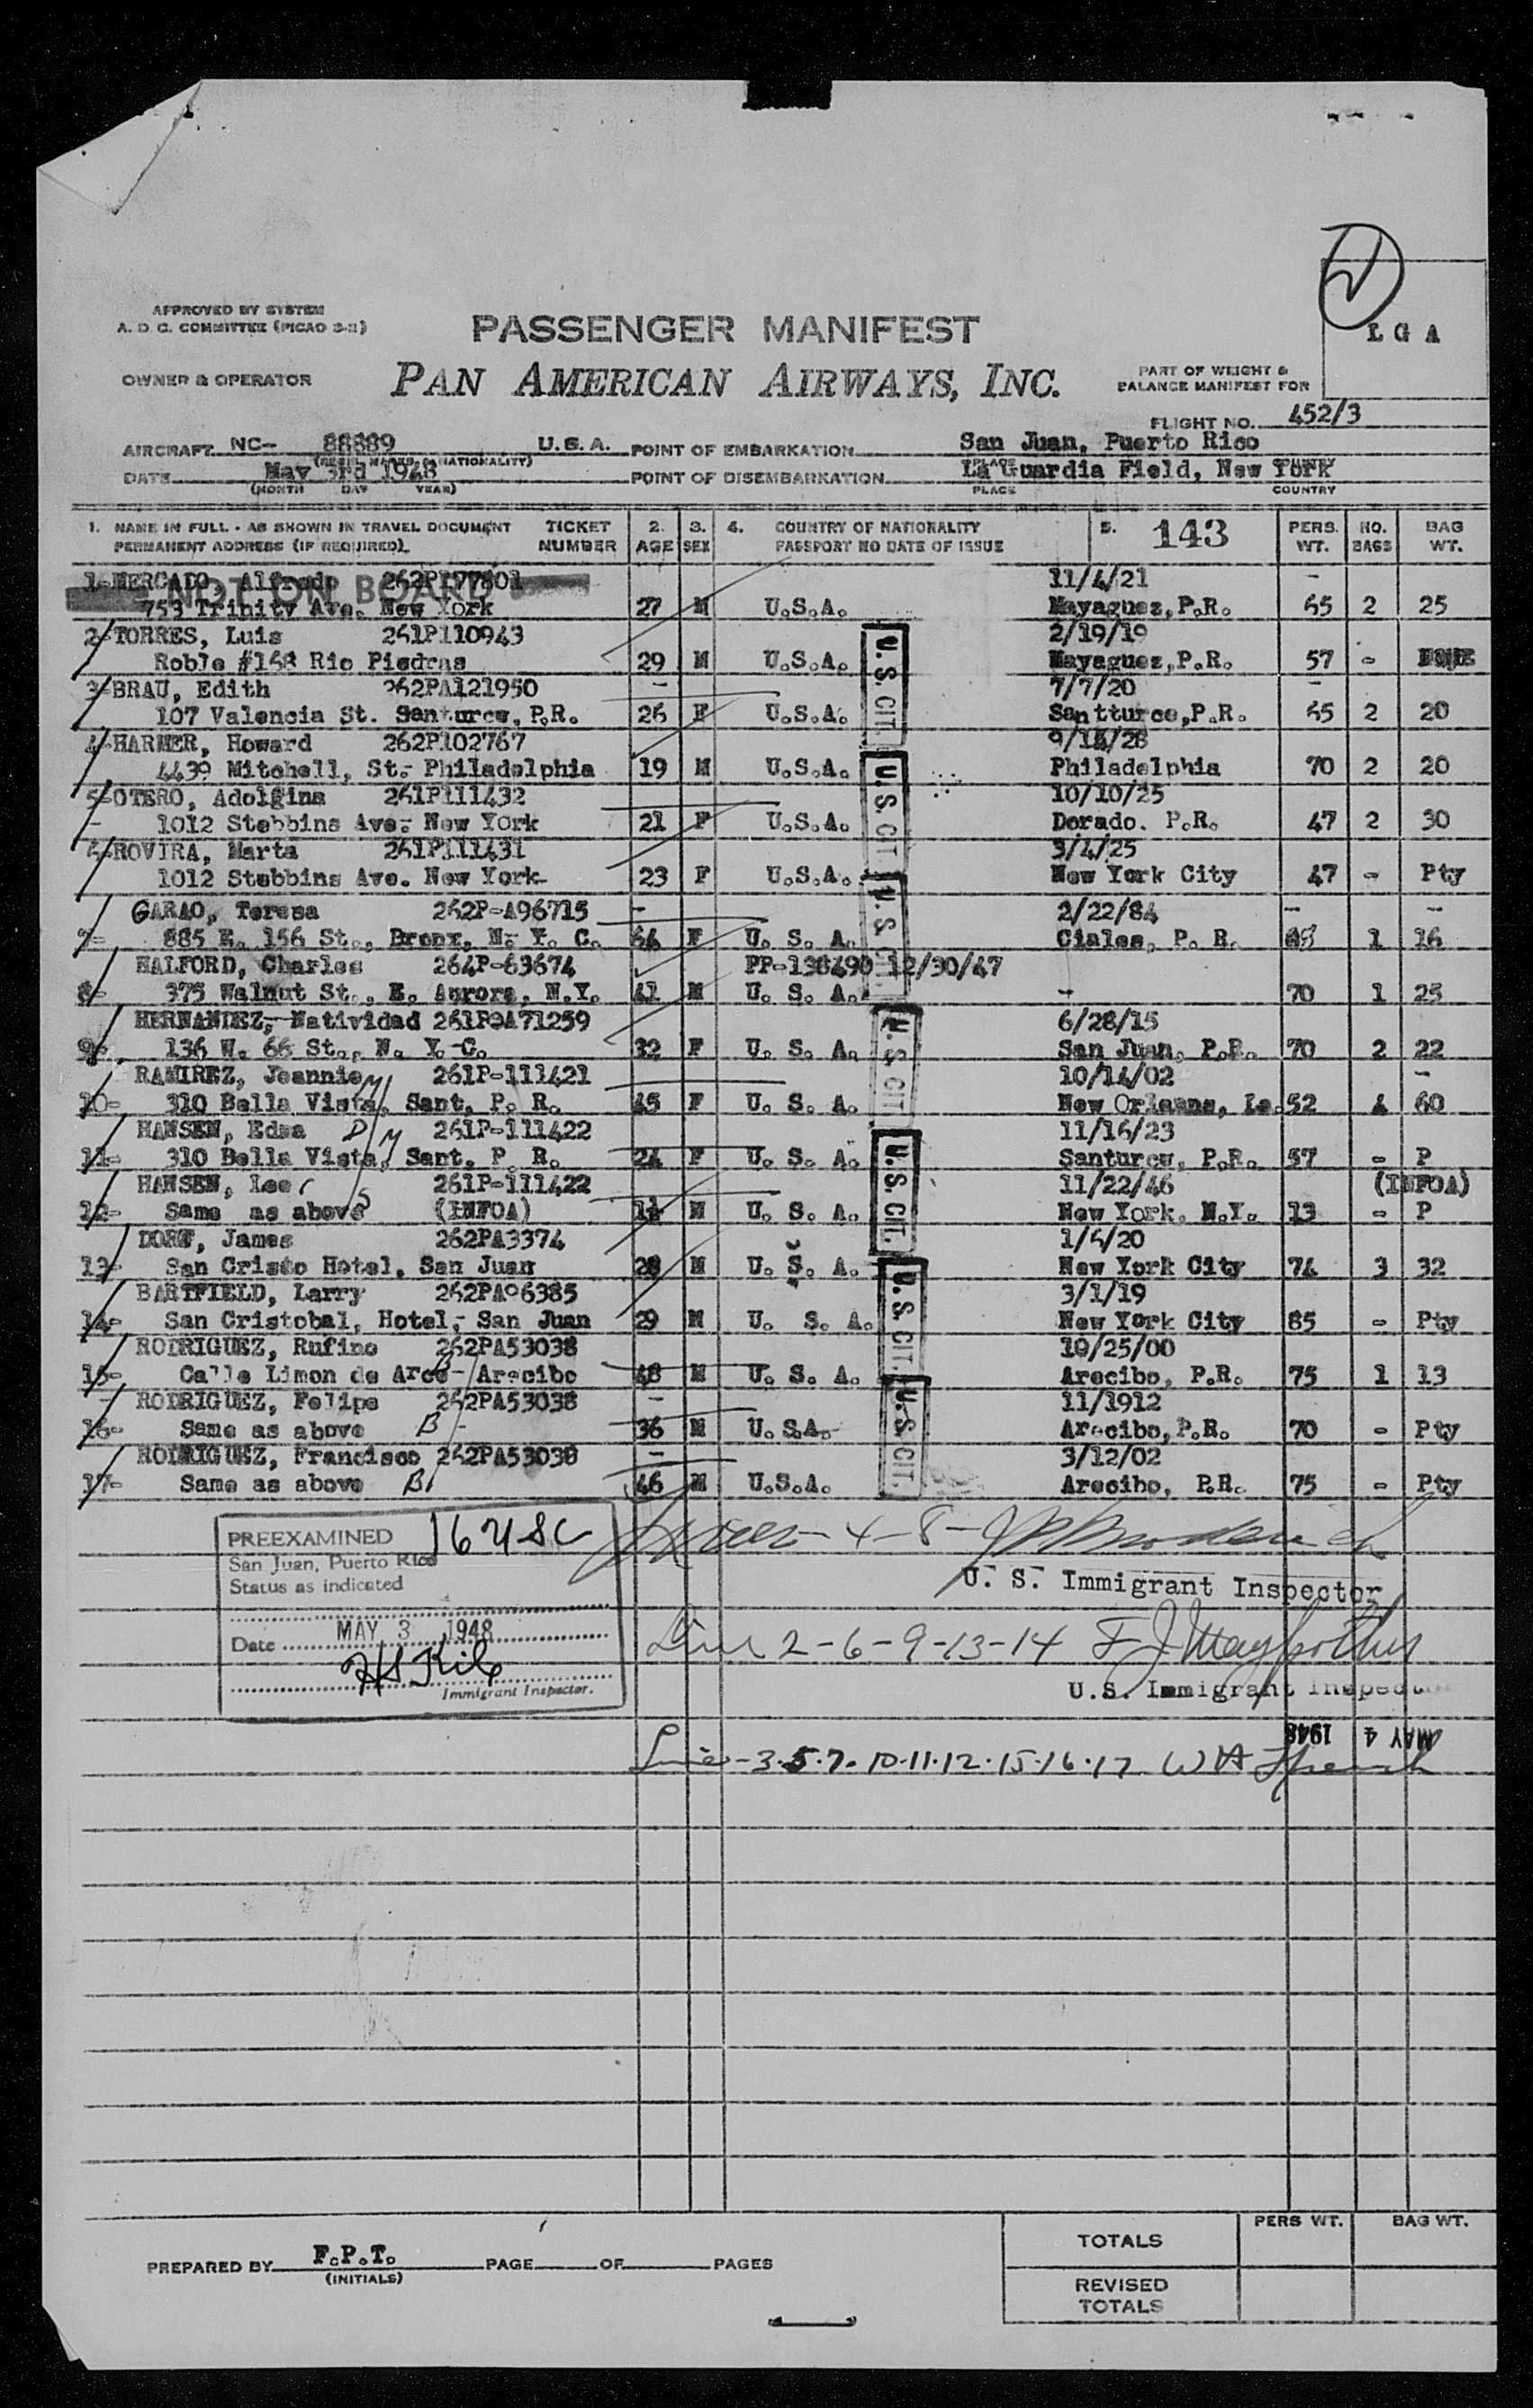 LGA
APPROVED BY SYSTEM
A. D. C. COMMITTEE (PICAO 3-2)
PASSENGER MANIFEST
OWNER & OPERATOR
PAN AMERICAN AIRWAYS, INC.
PART OF WEIGHT &
BALANCE MANIFEST FOR
FLIGHT NO. 452/3
AIRCRAFT NC- 88889 U.S.A. POINT OF EMBARKATION San Juan, Puerto Rico
DATE May 3rd 1948 POINT OF DISEMBARKATION La Guardia Field, New York
(MONTH DAY YEAR) PLACE COUNTRY
1. NAME IN FULL - AS SHOWN IN TRAVEL DOCUMENT TICKET 2. 3. 4. COUNTRY OF NATIONALITY 5. 143 PERS. NO. BAG
PERMANENT ADDRESS (IF REQUIRED) NUMBER AGE SEX PASSPORT NO DATE OF ISSUE WT. BAGS WT.
NOT ON BOARD
1- MERCADO, Alfredo 262P177801 11/4/21
753 Trinity Ave. New York 27 M U.S.A. Mayaguez, P.R. 65 2 25
2- TORRES, Luis 261P110943 2/19/19
Roble #168 Rio Piedras 29 M U.S.A. Mayaguez, P.R. 57 -
3- BRAU, Edith 262PA121950 - 7/7/20
107 Valencia St. Santurce, P.R. 26 F U.S.A. Santturce, P.R. 65 2 20
4- HARMER, Howard 262P102767
4439 Mitchell, St.- Philadelphia 19 M U.S.A. Philadelphia 70 2 20
5- OTERO, Adolgina 261P111432 10/10/25
1012 Stebbins Ave. New York 21 F U.S.A. Dorado. P.R. 47 2 30
6- ROVIRA, Marta 261P111431 3/4/25
1012 Stebbins Ave. New York 23 F U.S.A. New York City 47 - Pty
GARAO, Teresa 262P-A96715 - 2/22/84
7- 885 E. 156 St., Bronx, N. Y. C. 64 F U. S. A. Ciales, P. R. 1 16
HALFORD, Charles 264P-63674 PP-138490 12/30/47
8- 375 Walnut St., E. Aurora, N.Y. 41 M U. S. A. - 70 1 25
HERNANDEZ, Natividad 261P0A71259 6/28/15
9- 136 W. 66 St., N. Y. C. 32 F U. S. A. San Juan, P.R. 70 2 22
RAMIREZ, Jeannie 261P-111421 10/14/02
10- 310 Bella Vista, Sant. P. R. 45 F U. S. A. New Orleans, La. 52 4 60
HANSEN, Edna 261P-111422 11/16/23
11- 310 Bella Vista, Sant. P. R. 24 F U. S. A. Santurce, P.R. 57 - P
HANSEN, Lee 261P-111422 11/22/46 (INFOA)
12- Same as above (INFOA) M U. S. A. New York, N.Y. 13 - P
James 262PA3374 1/6/20
13- San Cristo Hotel, San Juan 28 M U. S. A. New York City 74 3 32
BARTFIELD, Larry 262PA96385 3/1/19
14- San Cristobal, Hotel, San Juan 29 M U. S. A. New York City 85 - Pty
RODRIGUEZ, Rufino 262PA53038 10/25/00
15- Calle Limon de Arce - Arecibo 48 M U. S. A. Arecibo, P.R. 75 1 13
RODRIGUEZ, Felipe 262PA53038 - 11/1912
16- Same as above B 36 M U.S.A. Arecibo, P.R. 70 - Pty
RODRIGUEZ, Francisco 262PA53038 - 3/12/02
17- Same as above B 46 M U.S.A. Arecibo, P.R. 75 - Pty
U.S. CIT.
U.S. CIT.
U.S. CIT.
U.S. CIT.
U.S. CIT.
U.S. CIT.
U.S. CIT.
PREEXAMINED 16 USC
San Juan, Puerto Rico
Status as indicated
Date MAY 3 1948
Immigrant Inspector.
Lines - 4 - 8 -
U. S. Immigrant Inspector
Line 2-6-9-13-14
U.S. Immigrant Inspector
MAY 4 1948
Line - 3.5.7.10.11.12.15.16.17
PREPARED BY F.P.T. PAGE OF PAGES
(INITIALS)
PERS WT. BAG WT.
TOTALS
REVISED
TOTALS